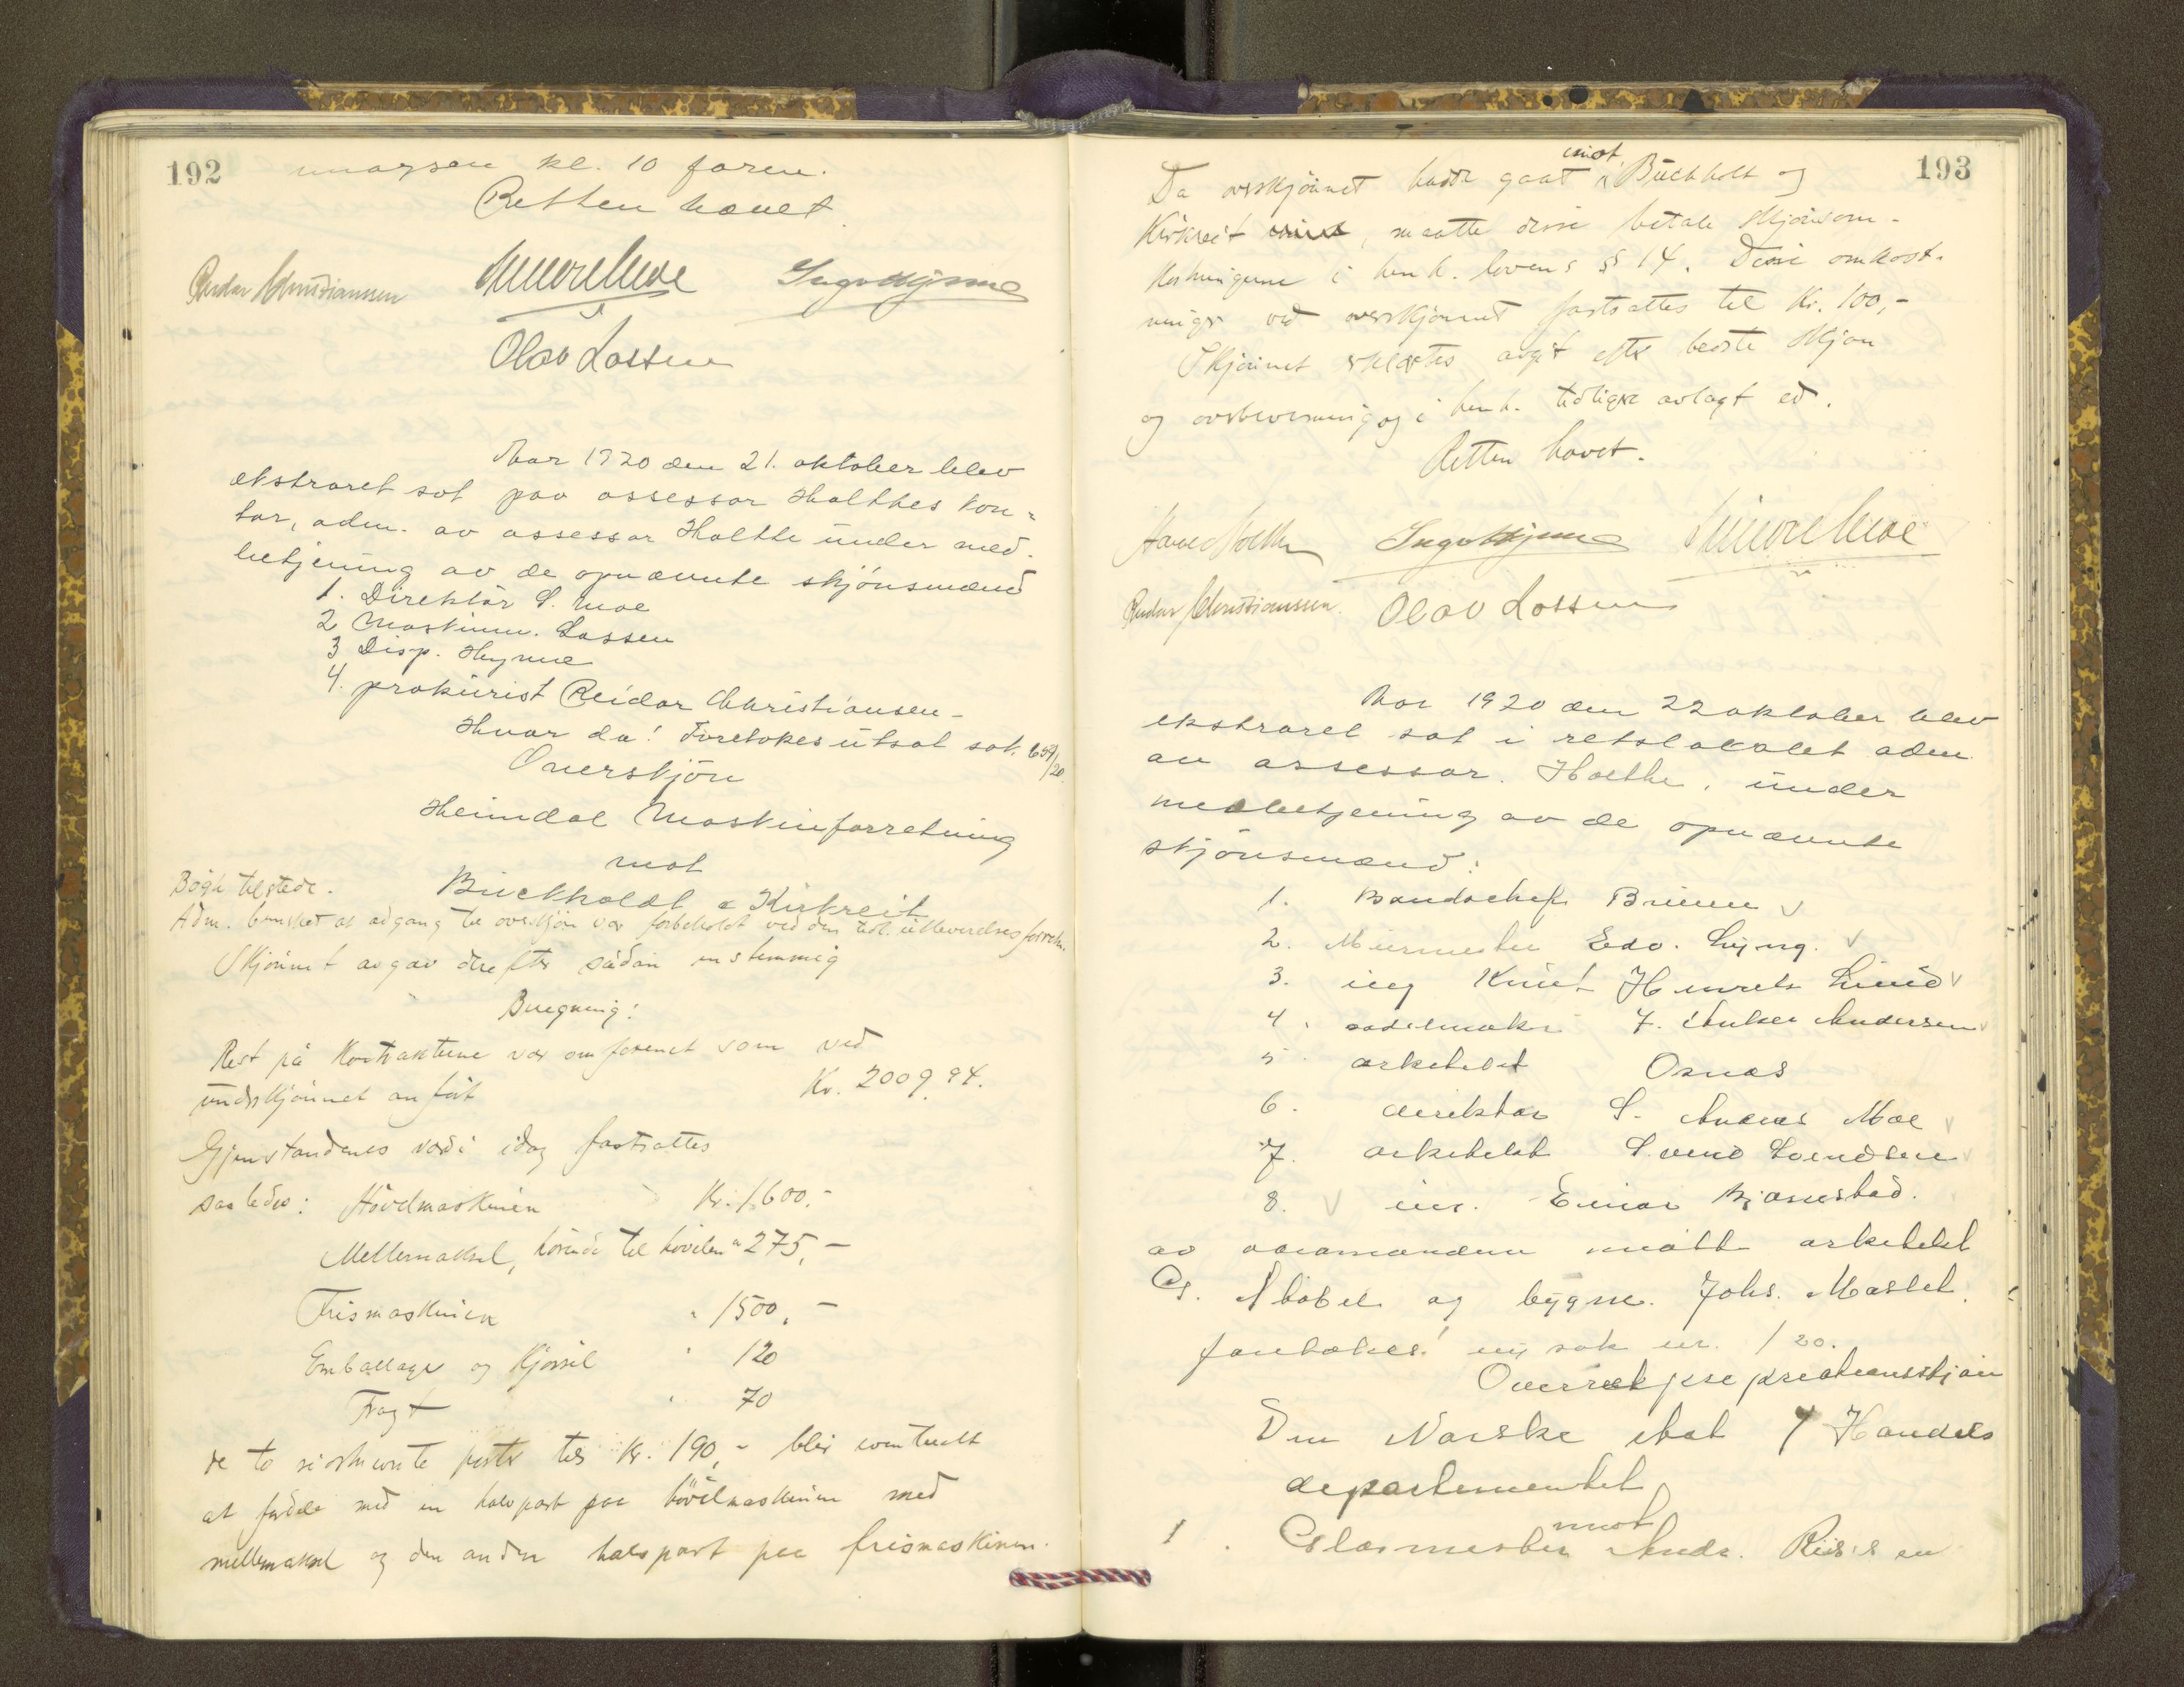 192
morgen kl. 10 form.
Retten hævet.
Reidar Christiansen
Simon Moe
Ingv Hjinne
Olav Lassen
Aar 1920 den 21. oktober blev
ekstraret sat paa assessor Holthes kon-
tor, adm. av assessor Holthe under med-
betjening av de opnævnte skjönsmænd
1. Direktör S. Moe
2 Maskinm. Lassen
3 Disp. Hynne
4. prokurist Reidar Christiansen -
Hvor da! Foretokes utsat sak 659/20
Overskjön
Heimdal Maskinforretning
mot
Buckholdt & Kirkreit
Bögh tilstede.
Adm. bemerket at adgang til overskjön var forbeholdt ved den utleverelsesforretn.
Skjönnet avgav derefter sådan enstemmig
Beregning:
Rest på kontraktene var omforenet som ved
underskjönnet anfört Kr. 2009.94.
Gjenstandenes værdi idag fastsattes
saaledes: Hövelmaskinen Kr. 1600.-
Mellemaksel, hörende til hövelen " 275,-
Frismaskinen " 1500,-
Emballage og kjörsel " 120
Fragt " 70
de to sidstnevnte poster tils Kr. 190,- blir eventuelt
at fordele med en halvpart paa hövelmaskinen med
mellemaksel og den anden halvpart paa frismaskinen.
193
Da overskjönnet hadde gaat imot Buchholt og
Kirkreit, maatte disse betale skjönsom-
kostningerne i henh. lovens §§ 14. Disse omkost-
ninger ved overskjönnet fastsattes til Kr. 100,-
Skjönnet erklærtes avgit efter bedste skjön
og overbevisning og i henh. tidligere avlagt ed.
Retten hævet.
Ingv Hjinne
Simon Moe
Reidar Christiansen.
Olav Lassen
Aar 1920 den 22 oktober blev
ekstraret sat i retslokalet adm
av assessor Holthe, under
medbetjening av de opnævnte
skjönsmænd:
1. Brandchef Bruun v
2. Murmester Edv. Ljyng. v
3. ing Knut Henrik Lund v
4. sadelmaker F. Anker Andersen v
5 arkitekt Osnes
6. direktör S. Andreas Moe v
7. arkitekt Svend Svendsen v
8. v ing. Einar Bjanestad.
av varamændene mötte arkitekt
G. Stabel og bygm. Johs. Maslet.
foretokes! ny sak nr. /20.
Overrekspropriationsskjön
Den Norske stat v/ Handels
departementet
mot
1. Glasmester Andr. Riis's en